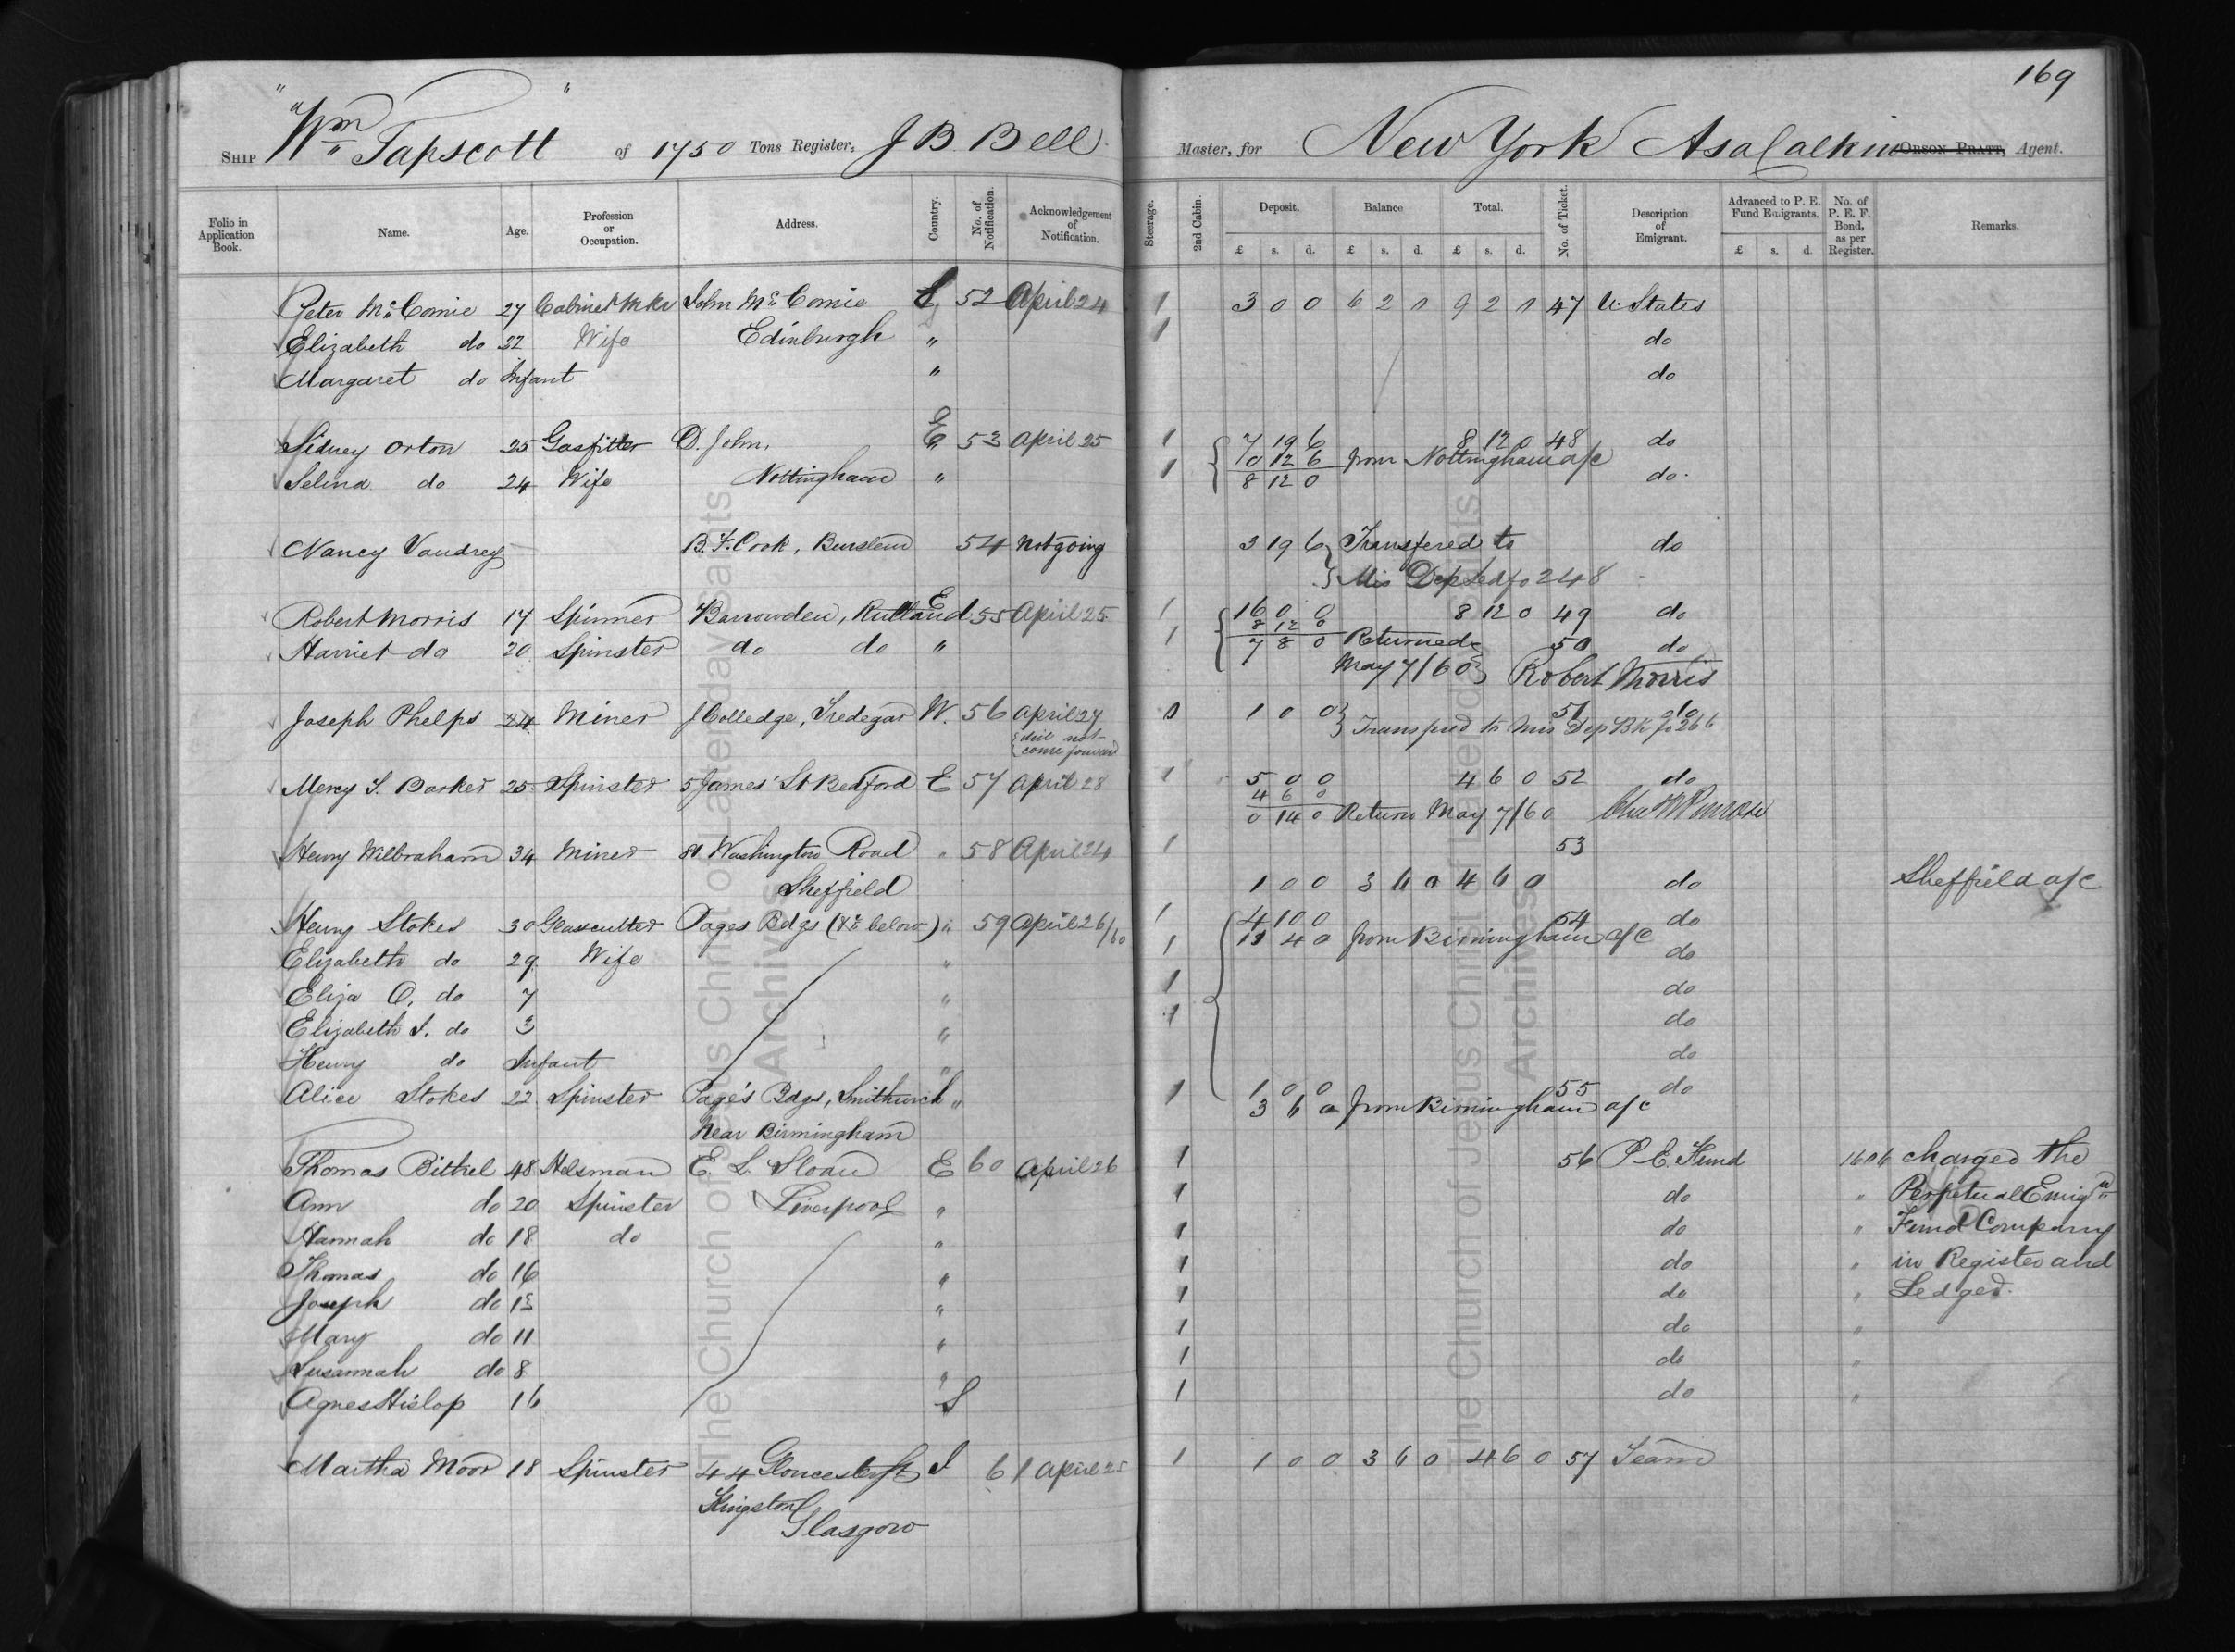 169
Ship "Wm Tapscott" of 1750 Tons Register, J B Bell Master, for New York Asa Calkin Orson Pratt, Agent.
Folio in Application Book. Name. Age. Profession or Occupation. Address. Country. No. of Notification. Acknowledgement of Notification. Steerage. 2nd Cabin. Deposit. £ s. d. Balance £ s. d. Total. £ s. d. No. of Ticket. Description of Emigrant. Advanced to P. E. Fund Emigrants. £ s. d. No. of P. E. F. Bond, as per Register. Remarks.
Peter McComie 27 Cabinet Mkr John McComie S 52 April 24 1 3 0 0 6 2 0 9 2 0 47 U. States
Elizabeth do 32 Wife Edinburgh " 1 do
Margaret do Infant " do
Sidney Orton 25 Gasfitter D. John, E 53 April 25 1 7 19 6 8 12 0 48 do
0 12 6 from Nottingham a/c
Selina do 24 Wife Nottingham " 1 8 12 0 do
Nancy Vaudrey B. F. Cook, Burslem 54 not going 3 19 6 Transfered to do
Mis Dep Led fo 248
Robert Morris 17 Spinner Barrowden, Rutland E 55 April 25 1 16 0 0 8 12 0 49 do
8 12 0
Harriet do 20 Spinster do do " 1 7 8 0 Returned 50 do
May 7/60 Robert Morris
Joseph Phelps 24 Miner J Colledge, Tredegar W. 56 April 27 0 1 0 0 51 do
did not come forward Transfred to Mis Dep Bk fo 266
Mercy S. Barker 25 Spinster 5 James' St Bedford E 57 April 28 1 5 0 0 4 6 0 52 do
4 6 0
0 14 0 Return May 7/60 Chas W Penrose
Henry Wilbraham 34 Miner 81 Washington Road " 58 April 24 1 53
Sheffield 1 0 0 3 6 0 4 6 0 do Sheffield a/c
Henry Stokes 30 Glasscutter Pages Bdgs (&c below) " 59 April 26/60 1 4 10 0 54 do
13 4 0 from Birmingham a/c
Elizabeth do 29 Wife " 1 do
Eliza O. do 7 " 1 do
Elizabeth S. do 3 " 1 do
Henry do Infant " do
Alice Stokes 22 Spinster Page's Bdgs, Smithwick " 1 1 0 0 55 do
3 6 0 from Birmingham a/c
Near Birmingham
Thomas Bithel 48 Helsman E. L. Sloan E 60 April 26 1 56 P. E. Fund 1606 charged the
Ann do 20 Spinster Liverpool " 1 do " Perpetual Emign
Hannah do 18 do " 1 do " Fund Company
Thomas do 16 " 1 do " in Register and
Joseph do 13 " 1 do " Ledger.
Mary do 11 " 1 do "
Susannah do 8 " 1 do "
Agnes Hislop 16 S 1 do "
Martha Moor 18 Spinster 44 Gloucester St S 61 April 25 1 1 0 0 3 6 0 4 6 0 57 Team
Kingston
Glasgow
The Church of Jesus Christ of Latter-day Saints
Archives
The Church of Jesus Christ of Latter-day Saints
Archives